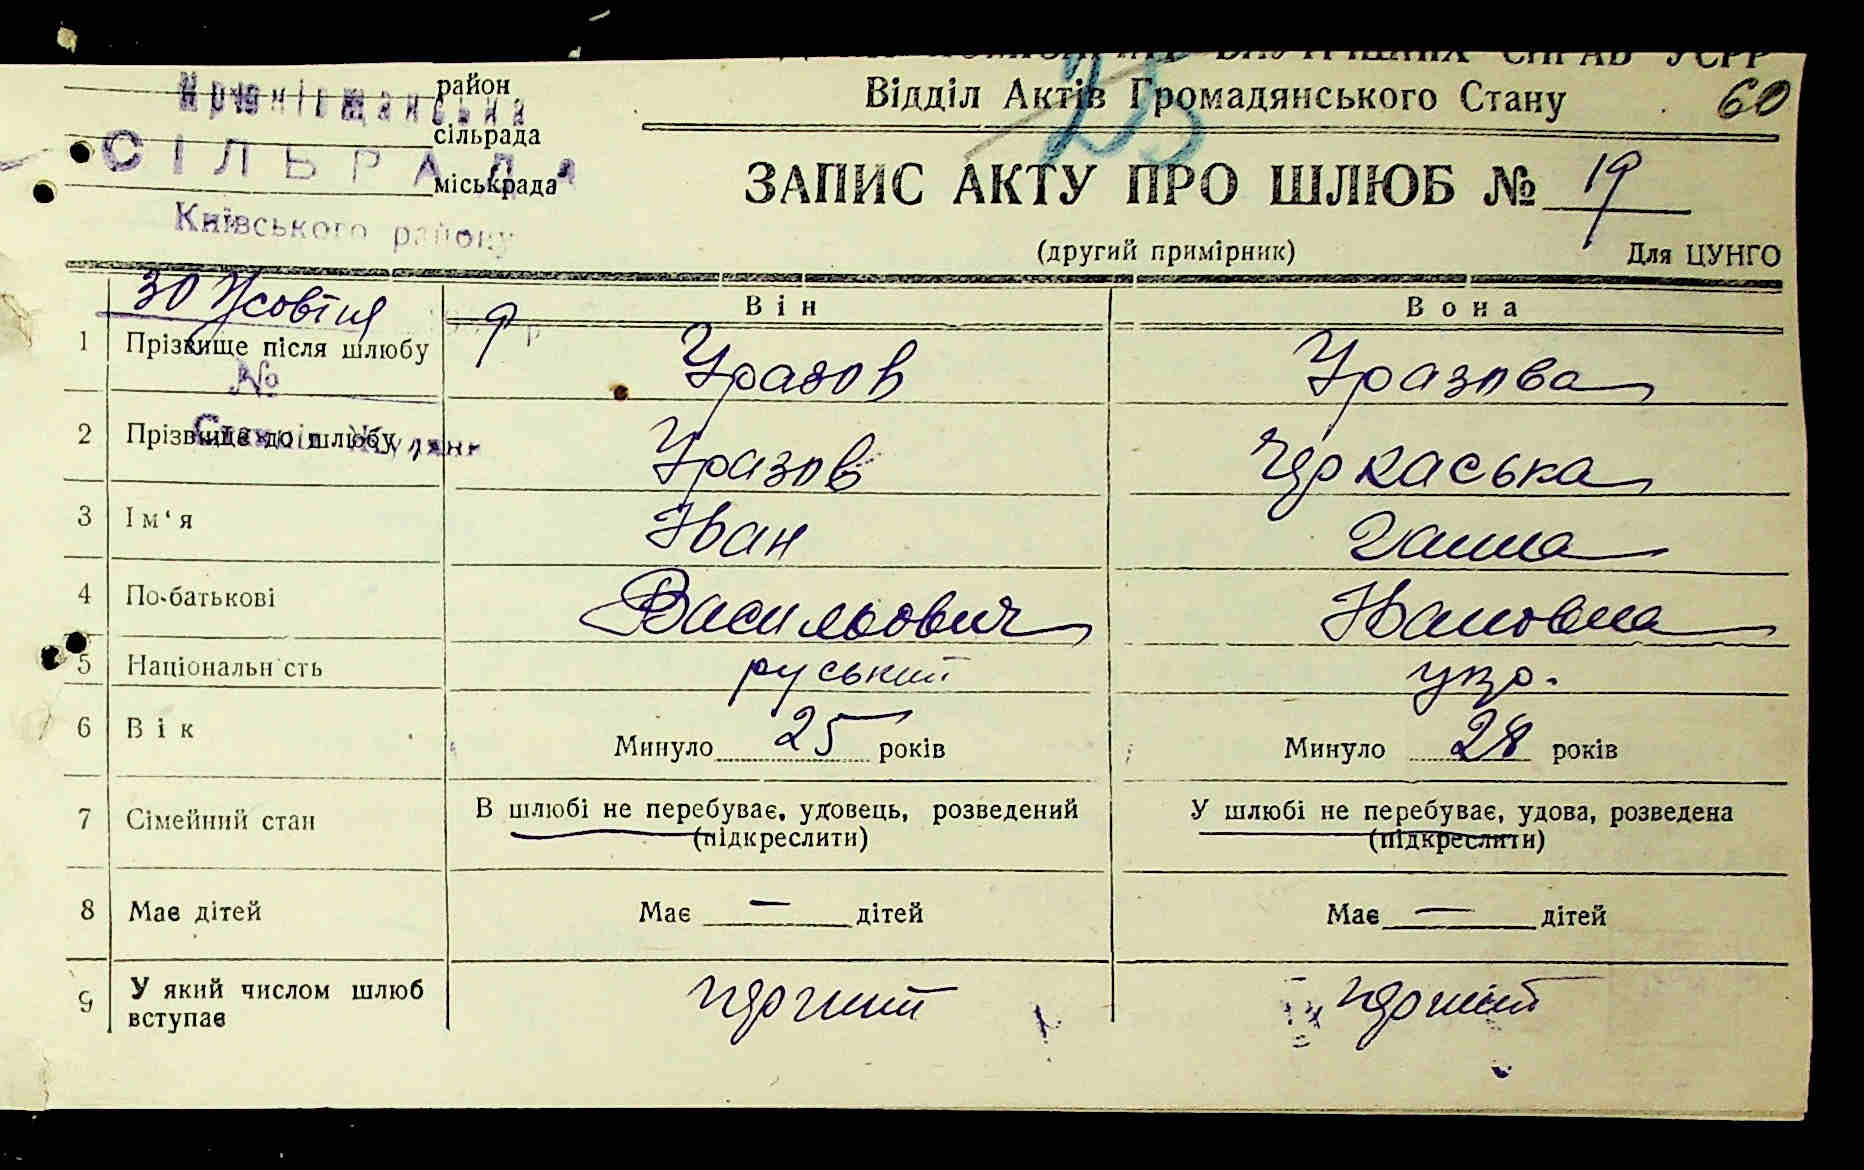 Відділ Актів Громадянського Стану 60
район
сільрада
СІЛЬРАДА
міськрада
Київського району
25
ЗАПИС АКТУ ПРО ШЛЮБ № 19
(другий примірник) Для ЦУНГО
30 Жовтня
Він Вона
1 Прізвище після шлюбу Уразов Уразова
№
2 Прізвище до шлюбу Уразов Черкаська
3 Ім‘я Іван Ганна
4 По-батькові Васильович Івановна
5 Національність руський укр.
6 Вік Минуло 25 років Минуло 28 років
7 Сімейний стан В шлюбі не перебуває, удовець, розведений У шлюбі не перебуває, удова, розведена
(підкреслити) (підкреслити)
8 Має дітей Має — дітей Має — дітей
9 У який числом шлюб вступає перший перший